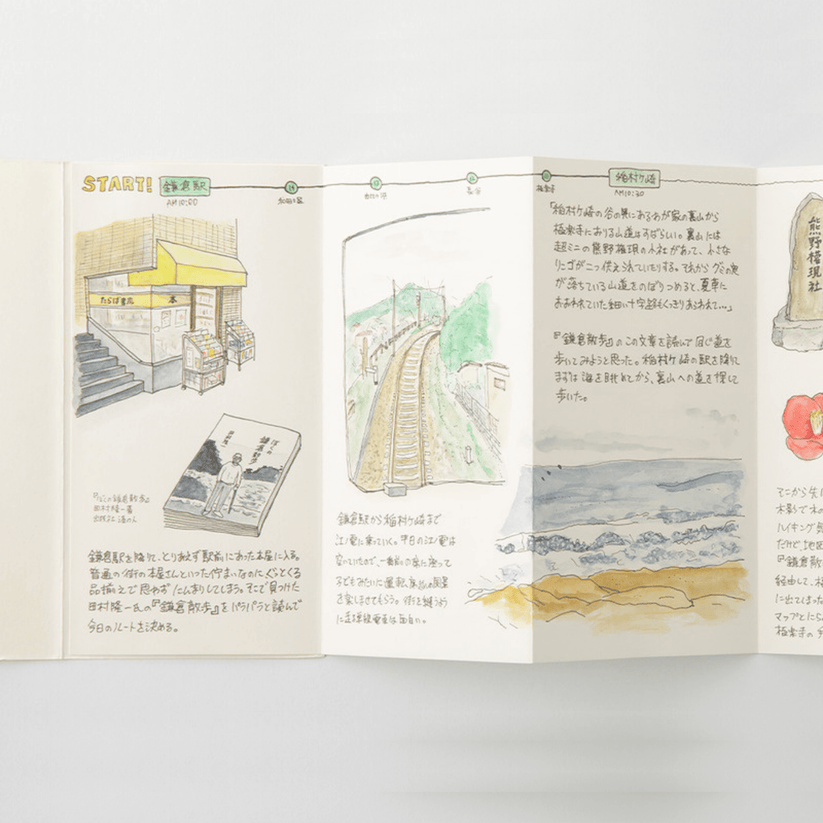 START! 鎌倉駅
AM10:00
和田塚
由比ヶ浜
長谷
極楽寺
稲村ヶ崎
AM10:30
たらば書房 本
ぼくの
鎌倉散歩
田村隆一
『ぼくの鎌倉散歩』
田村隆一著
出版社 港の人
鎌倉駅を降りて、とりあえず駅前にあった本屋に入る。
普通の街の本屋さんといった佇まいなのに、ぐっとくる
品揃えで思わずにんまりしてしまう。そこで見つけた
田村隆一氏の『鎌倉散歩』をパラパラと読んで
今日のルートを決める。
鎌倉駅から稲村ヶ崎まで
江ノ電に乗っていく。平日の江ノ電は
空いていたので、一番前の席に座って
子どもみたいに運転席からの風景
を楽しませてもらう。街を縫うように
走る電車は面白い。
「稲村ヶ崎の谷の奥にあるわが家の裏山から
極楽寺におりる山道はすばらしい。裏山には
超ミニの熊野権現の小社があって、小さな
リンゴが二つ供えられていたりする。それからグミの実
が落ちている山道をのぼりつめると、夏草に
おおわれていた細い十字路もくっきりあらわれて…」
『鎌倉散歩』のこの文章を読んで同じ道を
歩いてみようと思った。稲村ヶ崎の駅を降りて
まずは海を眺めてから、裏山への道を探して
歩いた。
熊野権現社